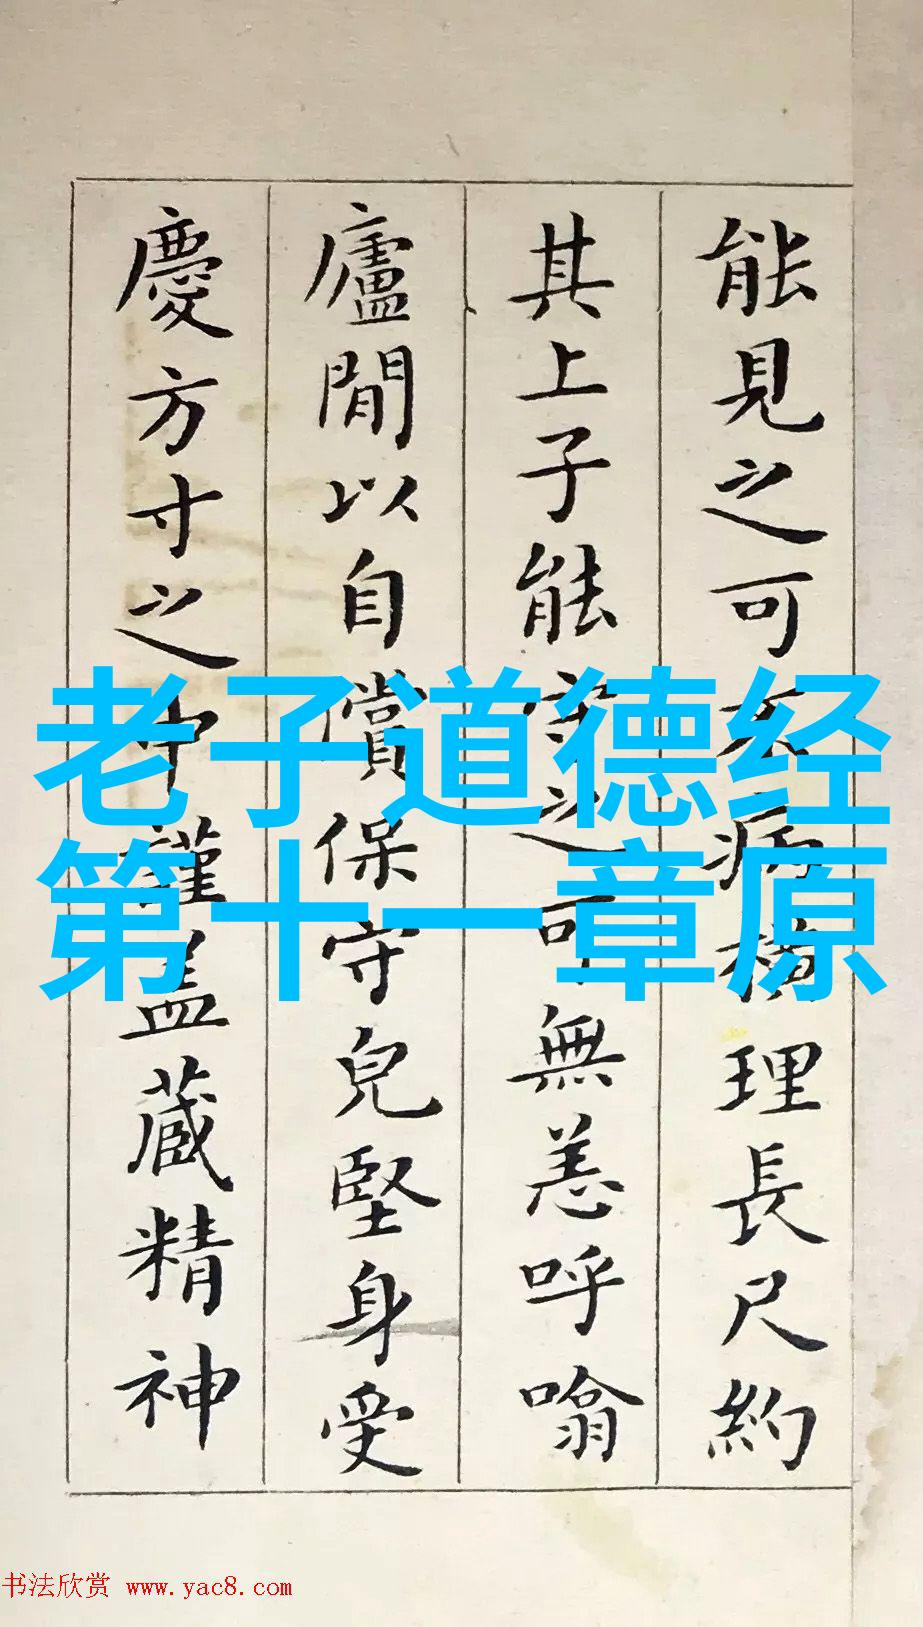 能見之可去病橫理長尺約
其上子能守之可無恙呼噏
廬間以自償保守兒堅身受
慶方寸之中謹蓋藏精神
老子道德经
第十一章原
书法欣赏 www.yac8.com